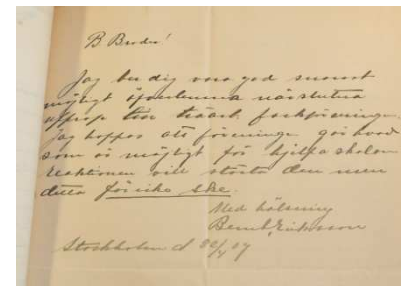 B Broder!
Jag ber dig vara god snarast
möjligt öfverlemna närslutna
upprop till träarb. fackförening.
Jag hoppas att föreningen gör hvad
som är möjligt för hjelpa skolan
reaktionen vill störta den men
detta får icke ske.
Med helsning
Bernh. Eriksson
Stockholm d 20/4 07